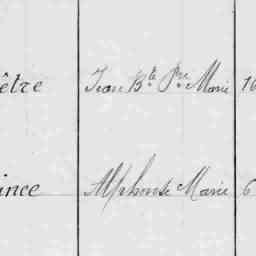 être Jean Bte Pre Marie 16
ince Alphonse Marie 6